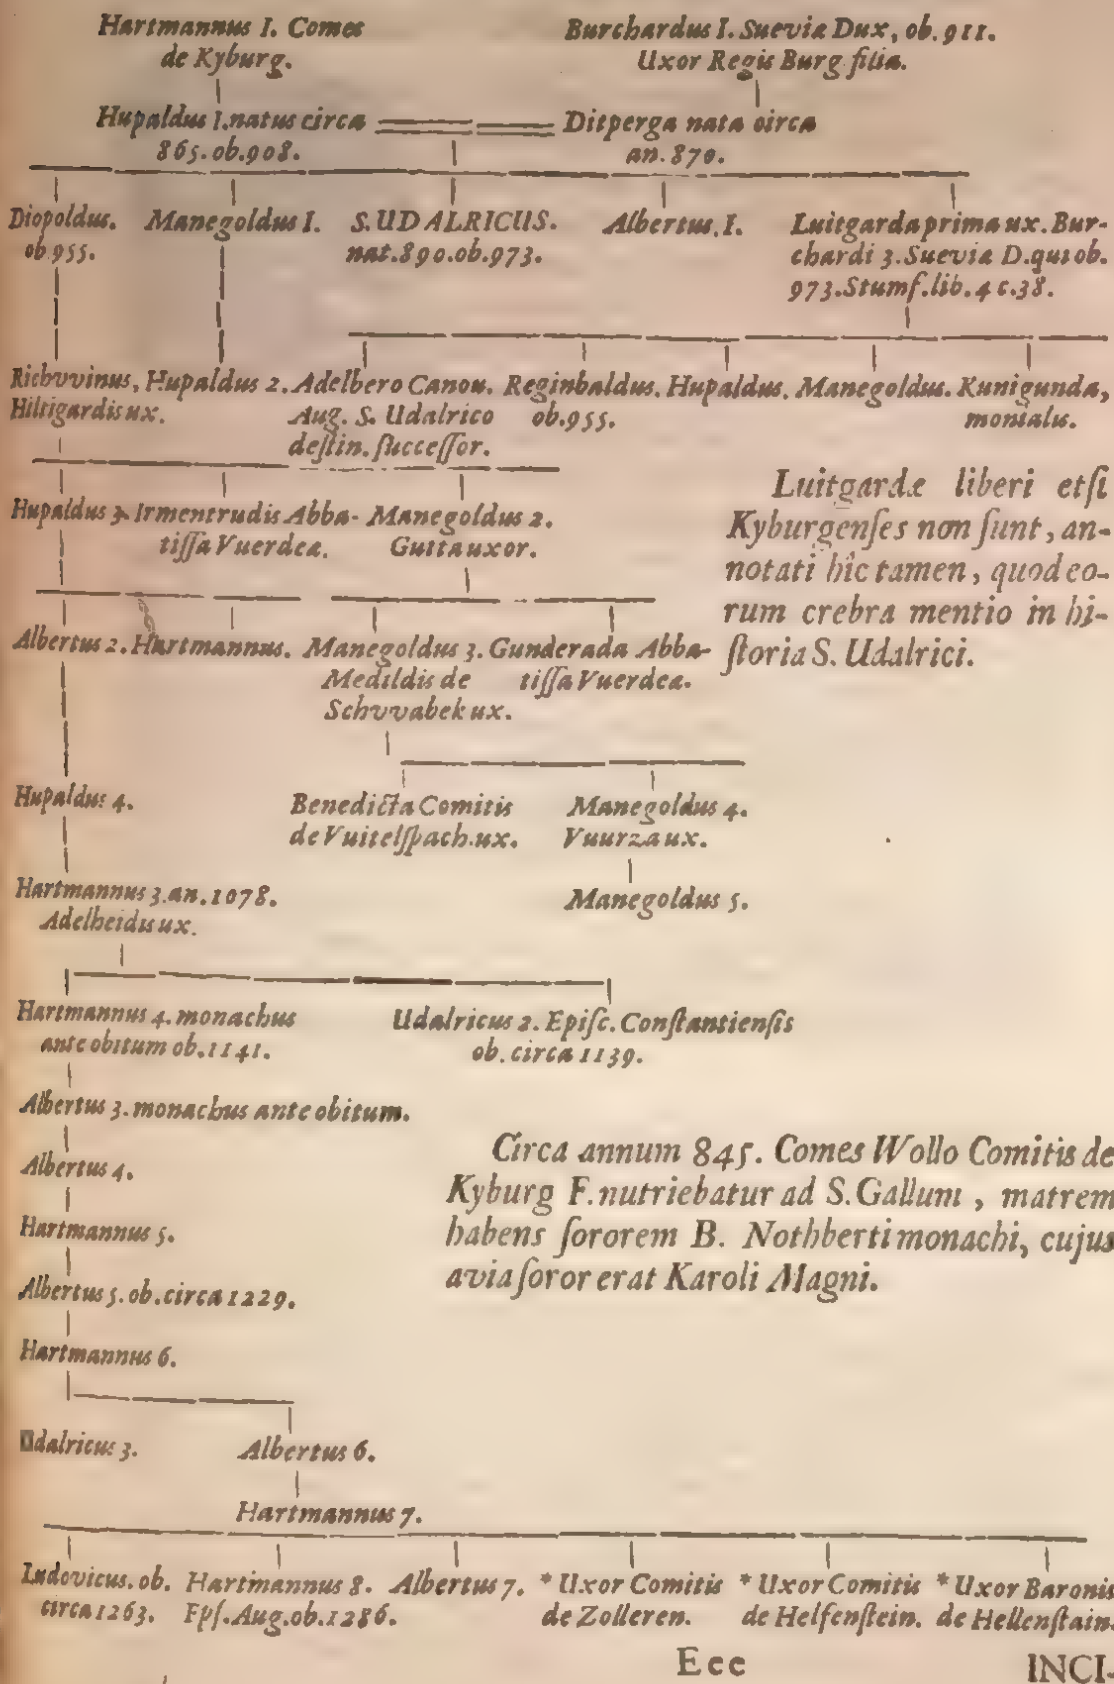 Hartmannus I. Comes
de Kyburg.
Burchardus I. Sueviæ Dux, ob. 911.
Uxor Regis Burg filia.
Hupaldus I. natus circa
865. ob. 908.
Ditperga nata circa
an. 870.
Diopoldus.
ob 955.
Manegoldus I.
S. UDALRICUS.
nat. 890. ob. 973.
Albertus. I.
Luitgarda prima ux. Bur-
chardi 3. Sueviæ D. qui ob.
973. Stumf. lib. 4 c. 38.
Richvvinus,
Hiltigardis ux.
Hupaldus 2.
Adelbero Canon.
Aug. S. Udalrico
destin. successor.
Reginbaldus.
ob. 955.
Hupaldus.
Manegoldus.
Kunigunda,
monialis.
Hupaldus 3.
Irmentrudis Abba-
tissa Vuerdea.
Manegoldus 2.
Gutta uxor.
Luitgardæ liberi etsi
Kyburgenses non sunt, an-
notati hîc tamen, quod eo-
rum crebra mentio in hi-
storia S. Udalrici.
Albertus 2.
Hartmannus.
Manegoldus 3.
Medildis de
Schvvabek ux.
Gunderada Abba-
tissa Vuerdea.
Hupaldus 4.
Benedicta Comitis
de Vuitelspach. ux.
Manegoldus 4.
Vuurza ux.
Hartmannus 3. an. 1078.
Adelheidis ux.
Manegoldus 5.
Hartmannus 4. monachus
ante obitum ob. 1141.
Udalricus 2. Episc. Constantiensis
ob. circa 1139.
Albertus 3. monachus ante obitum.
Albertus 4.
Hartmannus 5.
Albertus 5. ob. circa 1229.
Hartmannus 6.
Circa annum 845. Comes Wollo Comitis de
Kyburg F. nutriebatur ad S. Gallum, matrem
habens sororem B. Nothberti monachi, cujus
avia soror erat Karoli Magni.
Udalricus 3.
Albertus 6.
Hartmannus 7.
Ludovicus. ob.
circa 1263.
Hartmannus 8.
Eps. Aug. ob. 1286.
Albertus 7.
* Uxor Comitis
de Zolleren.
* Uxor Comitis
de Helfenstein.
* Uxor Baronis
de Hellenstain.
Eee
INCI-